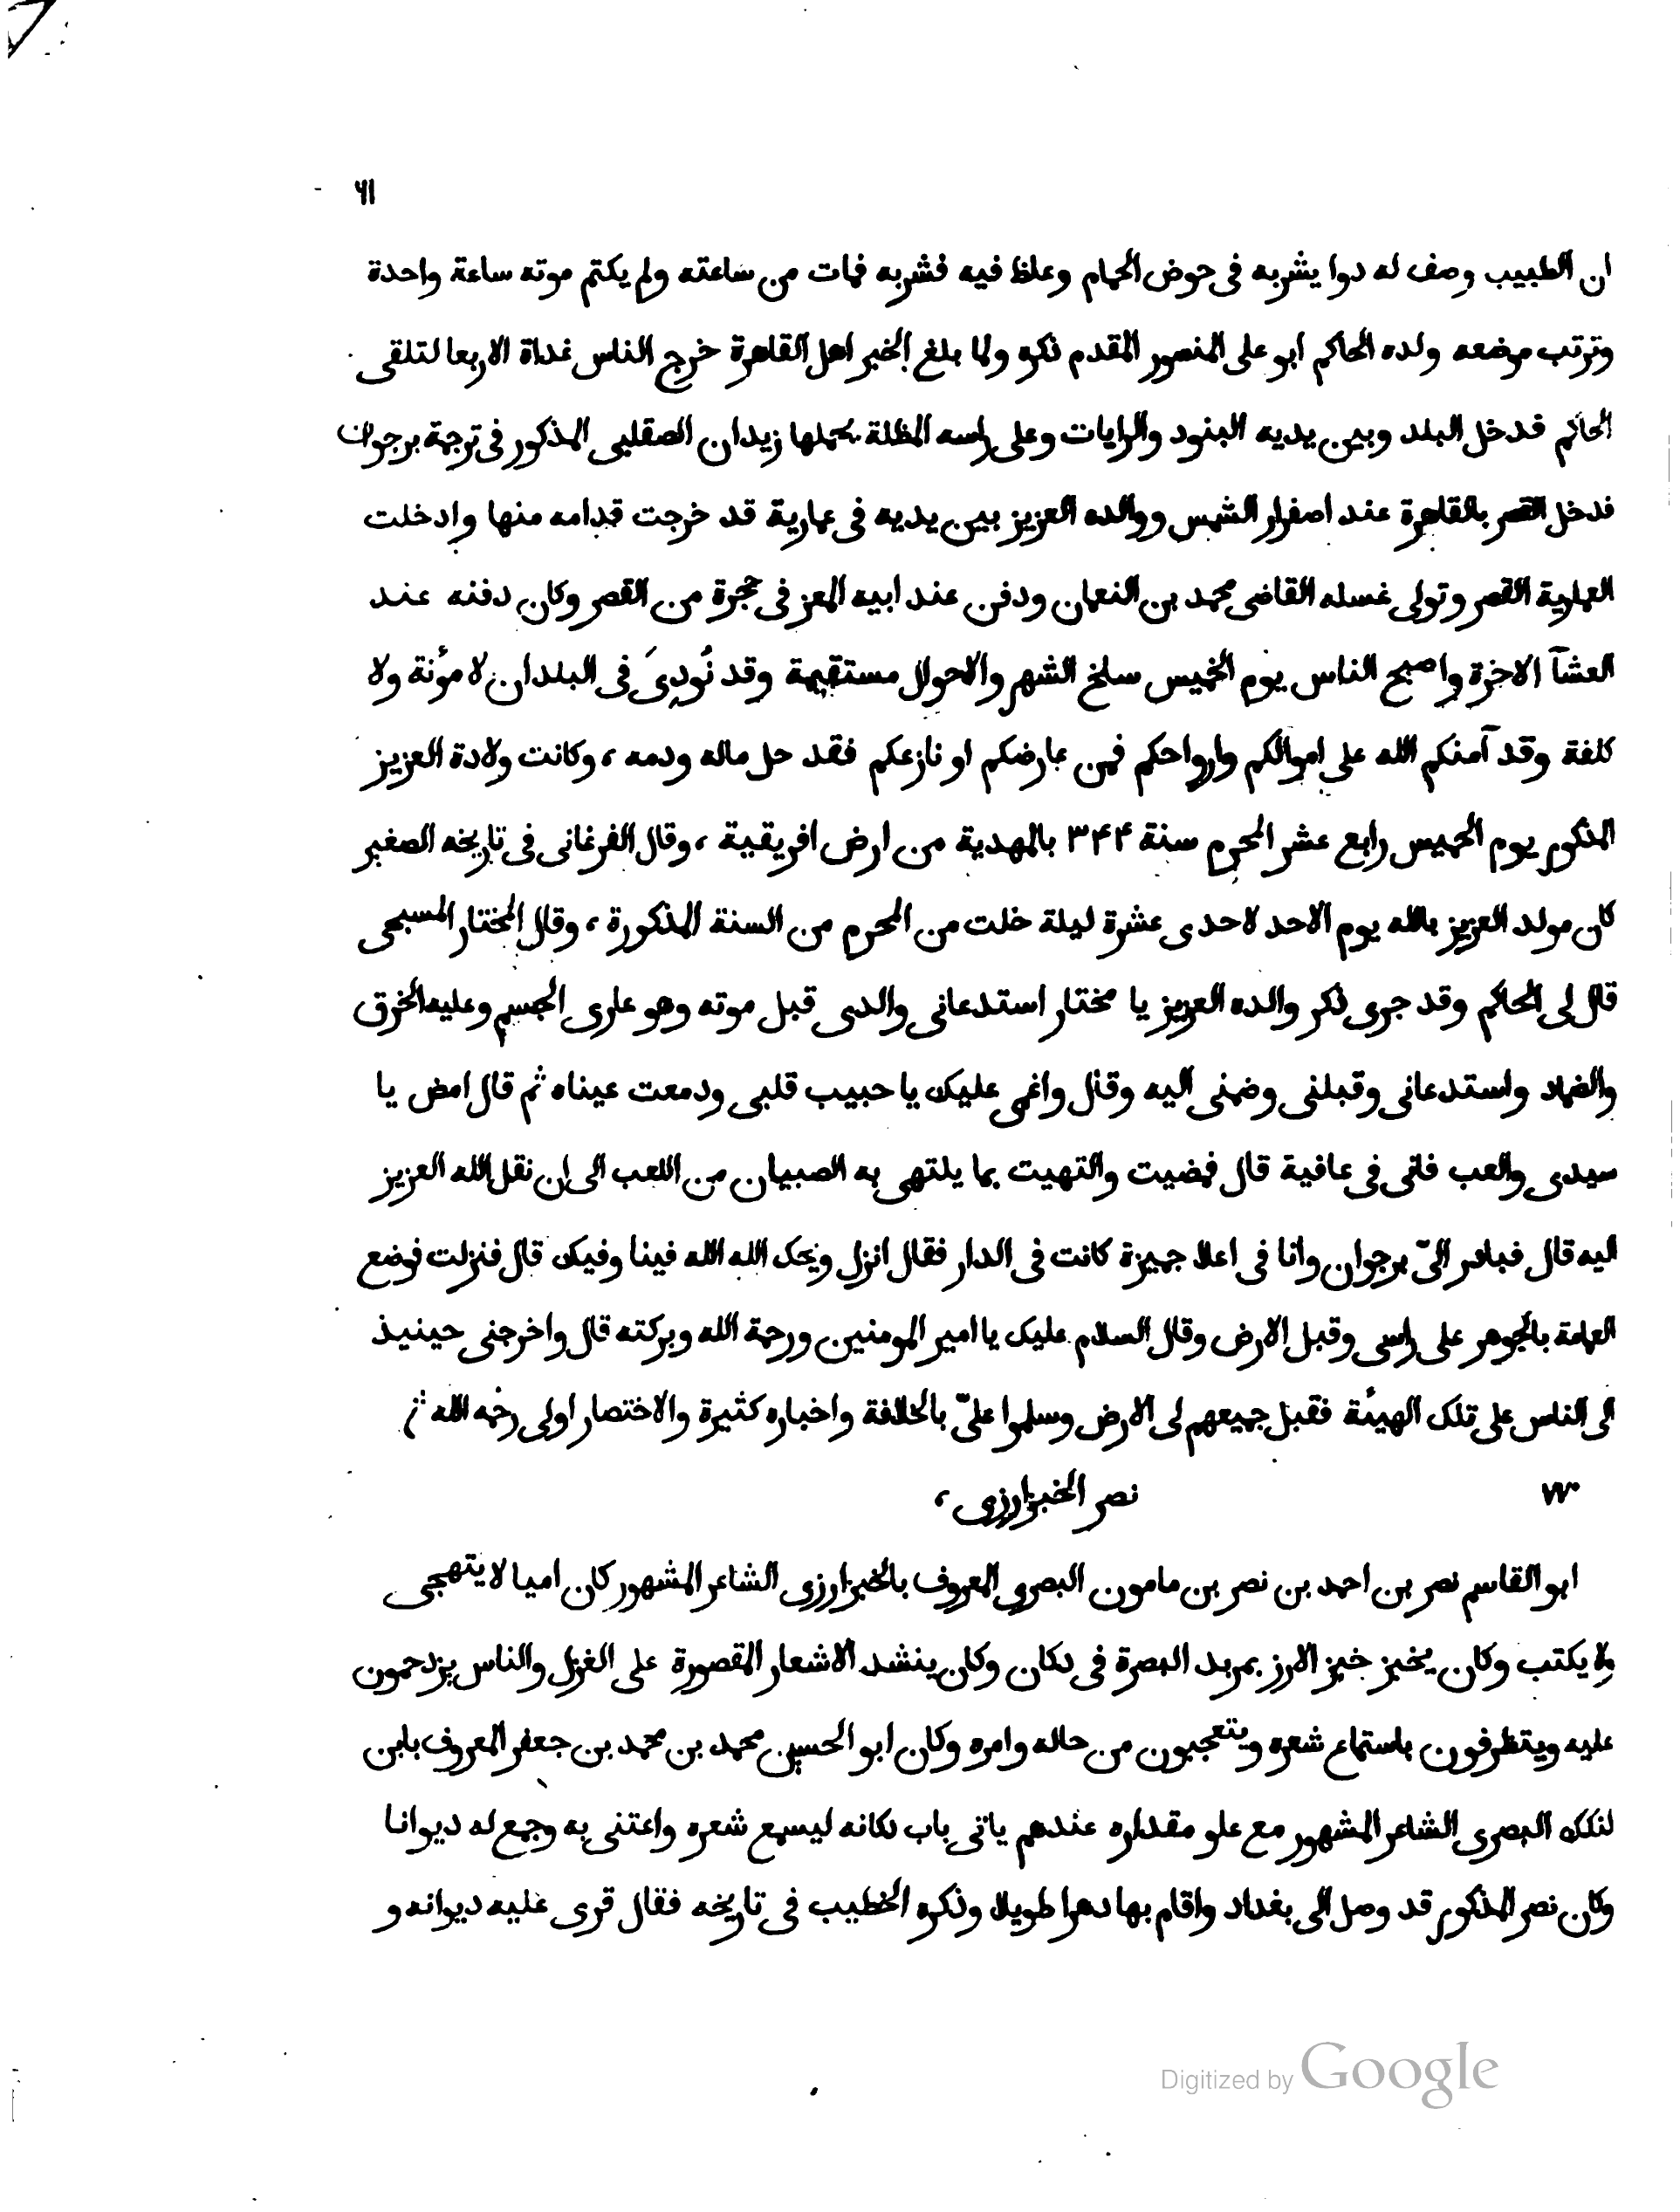 ٦١
ان الطبيب وصف له دوا يشربه فى حوض الحمام وغلظ فيه فشربه فمات من ساعته ولم يكتم موته ساعة واحدة
وترتب موضعه ولده الحاكم ابو على المنصور المقدم ذكره ولما بلغ الخبر اهل القاهرة خرج الناس غداة الاربعا لتلقى
الحاكم فدخل البلد وبين يديه البنود والرايات وعلى راسه المظلة يحملها زيدان الصقلبى المذكور فى ترجمة برجوان
فدخل القصر بالقاهرة عند اصفرار الشمس ووالده العزيز بين يديه فى عمارية قد خرجت قدامه منها وادخلت
العمارية القصر وتولى غسله القاضى محمد بن النعمان ودفن عند ابيه المعز فى حجرة من القصر وكان دفنه عند
العشآ الاخرة واصبح الناس يوم الخميس سلخ الشهر والاحوال مستقيمة وقد نُودِىَ فى البلدان لا مؤنة ولا
كلفة وقد آمنكم الله على اموالكم وارواحكم فمن عارضكم او نازعكم فقد حل ماله ودمه ، وكانت ولادة العزيز
المذكور يوم الخميس رابع عشر المحرم سنة ٣۴۴ بالمهدية من ارض افريقية ، وقال الفرغانى فى تاريخه الصغير
كان مولد العزيز بالله يوم الاحد لاحدى عشرة ليلة خلت من المحرم من السنة المذكورة ، وقال المختار المسبحى
قال لى الحاكم وقد جرى ذكر والده العزيز يا مختار استدعانى والدى قبل موته وهو عارى الجسم وعليه الخرق
والضماد واستدعانى وقبلنى وضمنى اليه وقال واغمى عليك يا حبيب قلبى ودمعت عيناه ثم قال امض يا
سيدى والعب فانى فى عافية قال فمضيت والتهيت بما يلتهى به الصبيان من اللعب الى ان نقل الله العزيز
اليه قال فبادر الىّ برجوان وانا فى اعلا جميزة كانت فى الدار فقال انزل ويحك الله الله فينا وفيك قال فنزلت فوضع
العمامة بالجوهر على راسى وقبل الارض وقال السلام عليك يا امير المومنين ورحمة الله وبركته قال واخرجنى حينيذ
الى الناس على تلك الهيئة فقبل جميعهم لى الارض وسلموا علىّ بالخلافة واخباره كثيرة والاختصار اولى رحمه الله
٧٧٠ نصر الخبزارزى ،
ابو القاسم نصر بن احمد بن نصر بن مامون البصرى المعروف بالخبزارزى الشاعر المشهور كان اميا لا يتهجى
ولا يكتب وكان يخبز خبز الارز بمربد البصرة فى دكان وكان ينشد الاشعار المقصورة على الغزل والناس يزدحمون
عليه ويتظرفون باستماع شعره ويتعجبون من حاله وامره وكان ابو الحسين محمد بن محمد بن جعفر المعروف بابن
لنكك البصرى الشاعر المشهور مع علو مقداره عندهم ياتى باب دكانه ليسمع شعره واعتنى به وجمع له ديوانا
وكان نصر المذكور قد وصل الى بغداد واقام بها دهرا طويلا وذكره الخطيب فى تاريخه فقال قرى عليه ديوانه و
Digitized by Google